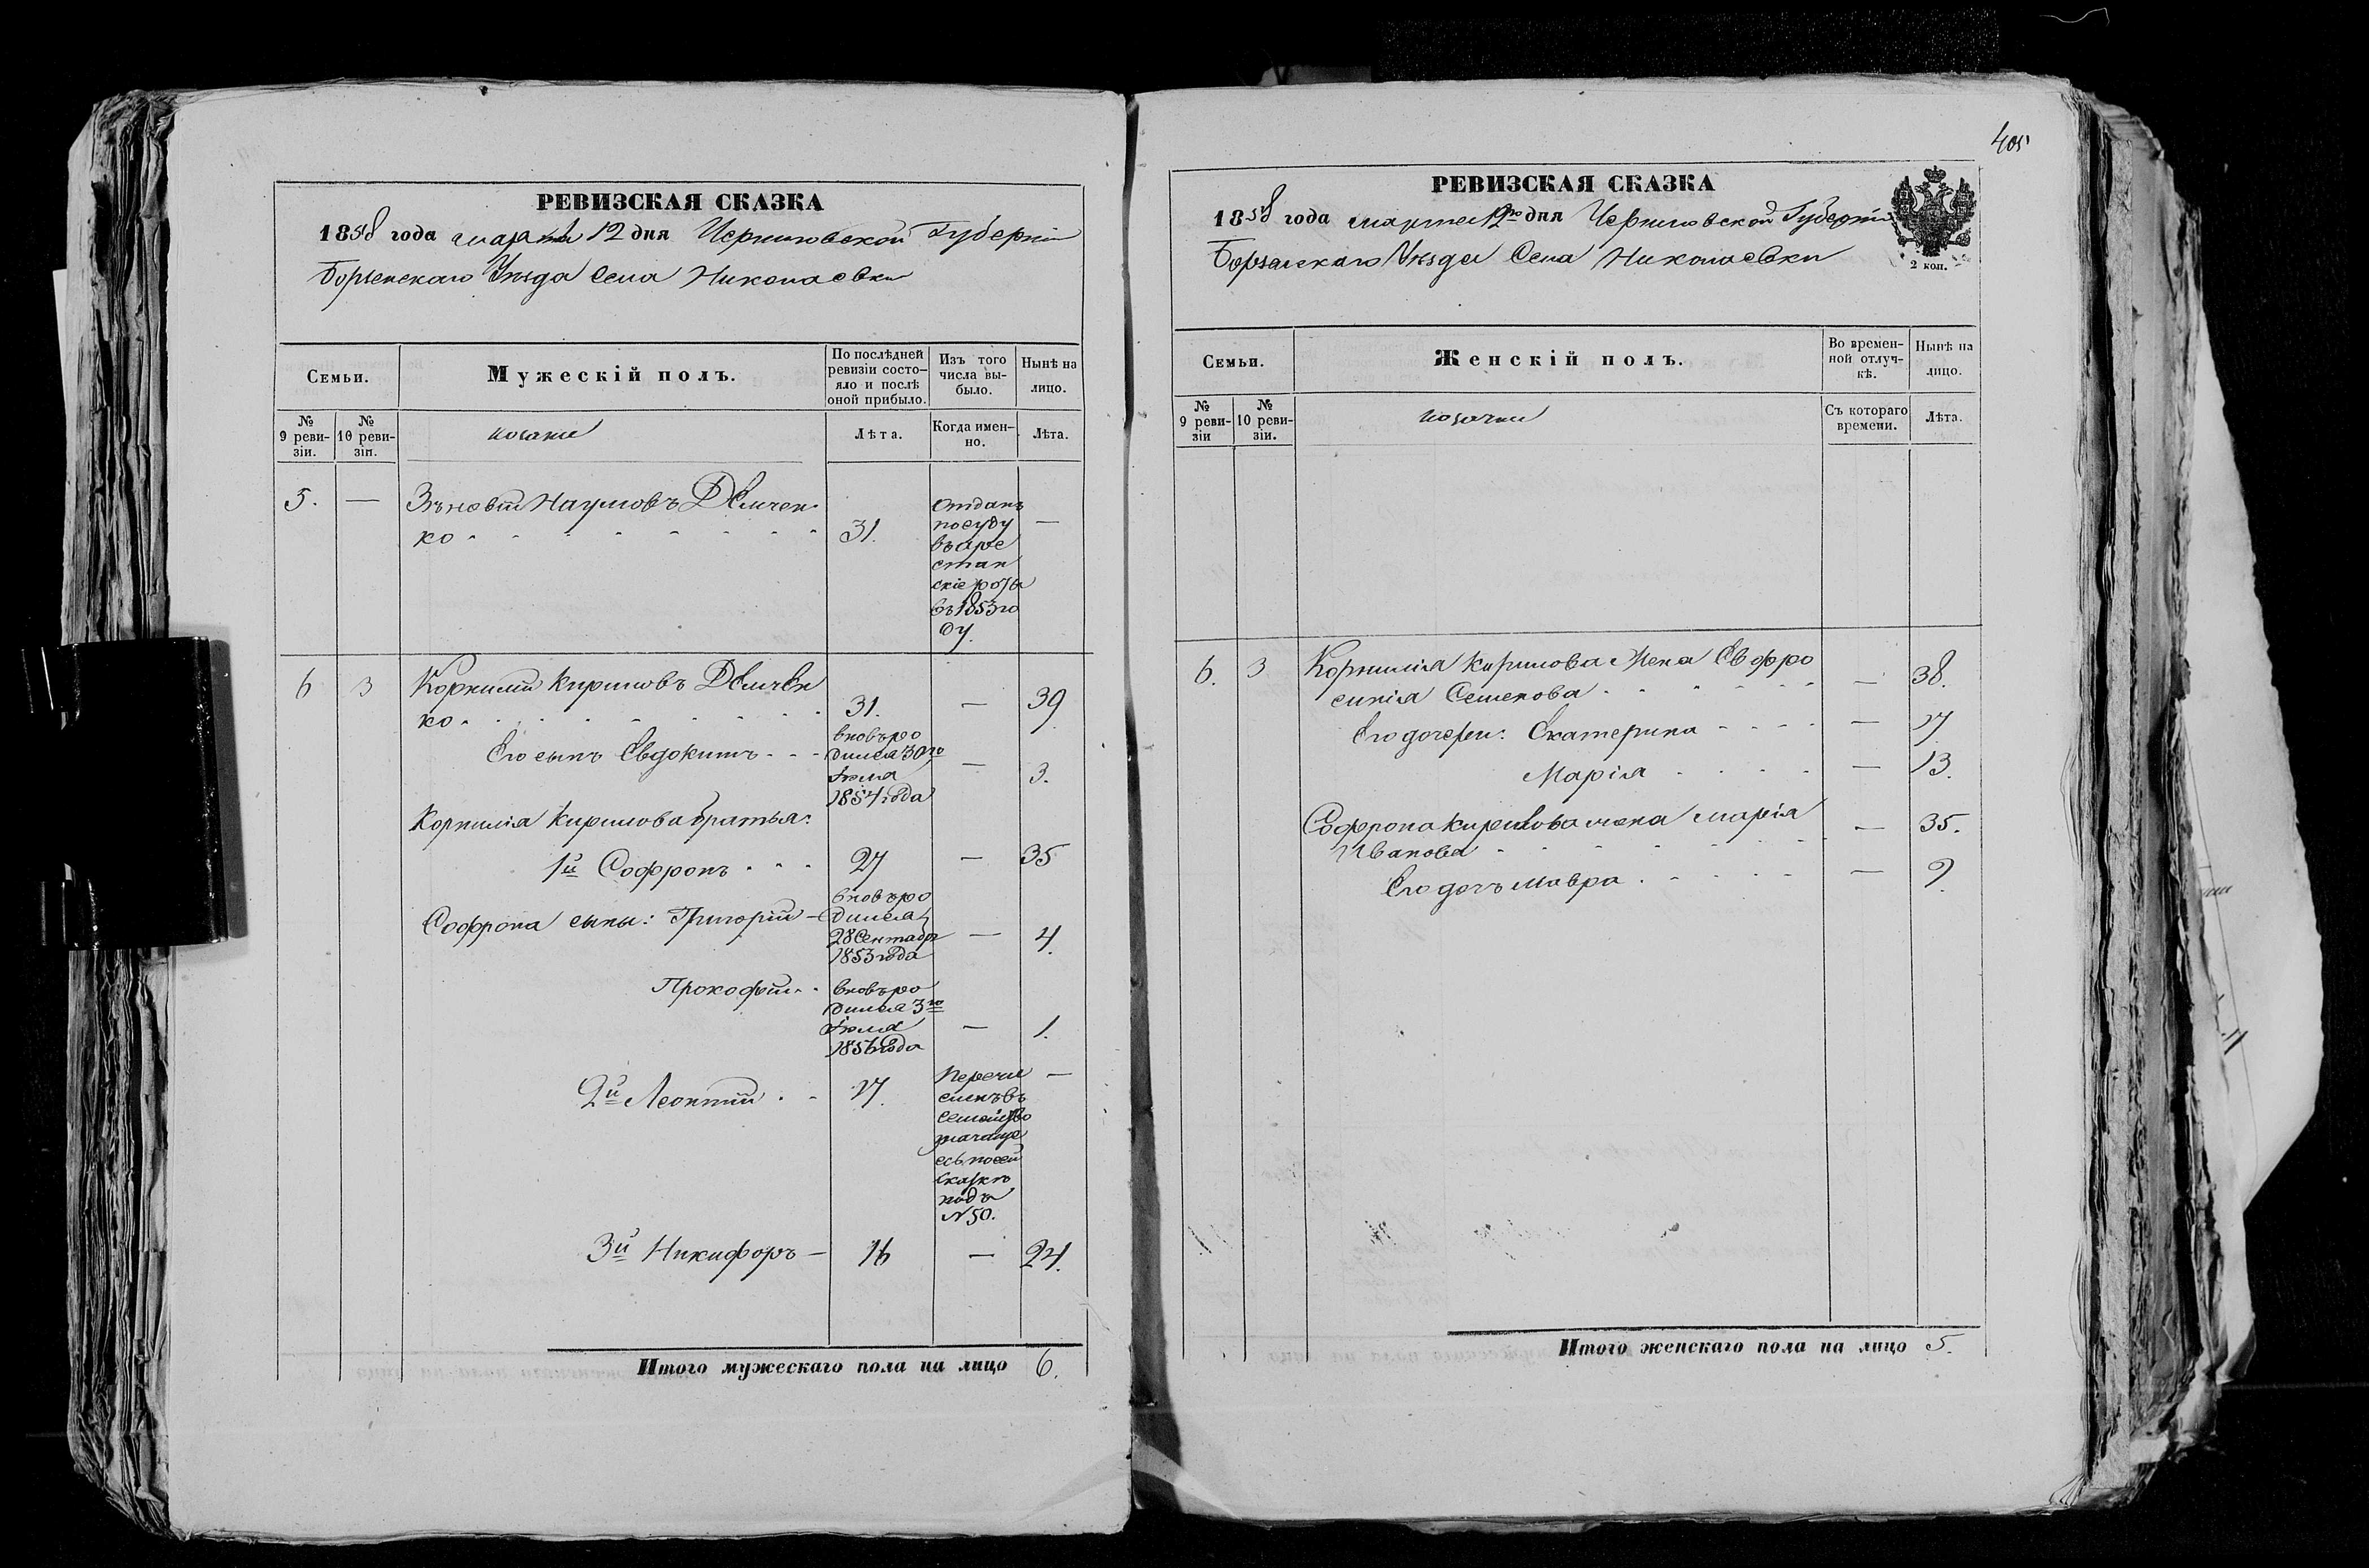 405
РЕВИЗСКАЯ СКАЗКА
1858 года марта 12 дня Черниговской Губерніи
Борзенскаго Уѣзда Села Николаевки
Семьи.
Мужескій полъ.
По послѣдней ревизіи состояло и послѣ оной прибыло.
Изъ того числа выбыло.
Нынѣ на лицо.
№ 9 ревизіи.
№ 10 ревизіи.
козаки
Лѣта.
Когда именно.
Лѣта.
5. — Зѣновій Наумовъ Демчен
ко 31. —
Отданъ
по суду
въ аре
стан
скіе роты
въ 1853 го
ду.
6 3 Корнилій Кириловъ Демчен
ко 31. — 39
Его сынъ Евдокимъ — 3.
вновь ро
дился 30го
Іюля
1854 года
Корнилія Кирилова братья:
1й Софронъ 27 — 35
Софрона сыны: Григорій — 4.
вновь ро
дился
28 Сентабр
1853 года
Прокофій — 1.
вновь ро
дился 3го
Іюля
1856 года
2й Леонтій 17. —
Перечи
сленъ въ
семейство
значаще
есь по сей
сказкѣ
подъ
N 50.
3й Никифоръ — 16 — 24.
Итого мужескаго пола на лицо 6.
РЕВИЗСКАЯ СКАЗКА
1858 года марта 12го дня Черниговской Губерніи
Борзенскаго Уѣзда Села Николаевки
2 коп.
Семьи.
Женскій полъ.
Во временной отлучкѣ.
Нынѣ на лицо.
№ 9 ревизіи
№ 10 ревизіи.
козачки
Съ котораго времени.
Лѣта.
6. 3 Корнилія Кирилова Жена Евфро
синія Семенова — 38.
Его дочери: Екатерина — 17
Марія — 13.
Софрона Кирилова жена Марія
Иванова — 35.
Его дочь Мавра — 9.
Итого женскаго пола на лицо 5.